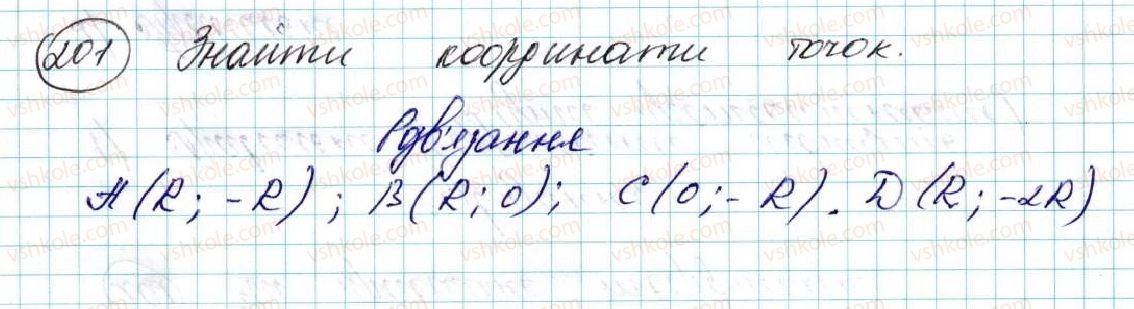 201 Знайти координати точок.
Розв'язання
A(R; -R); B(R; 0); C(0; -R). D(R; -2R)